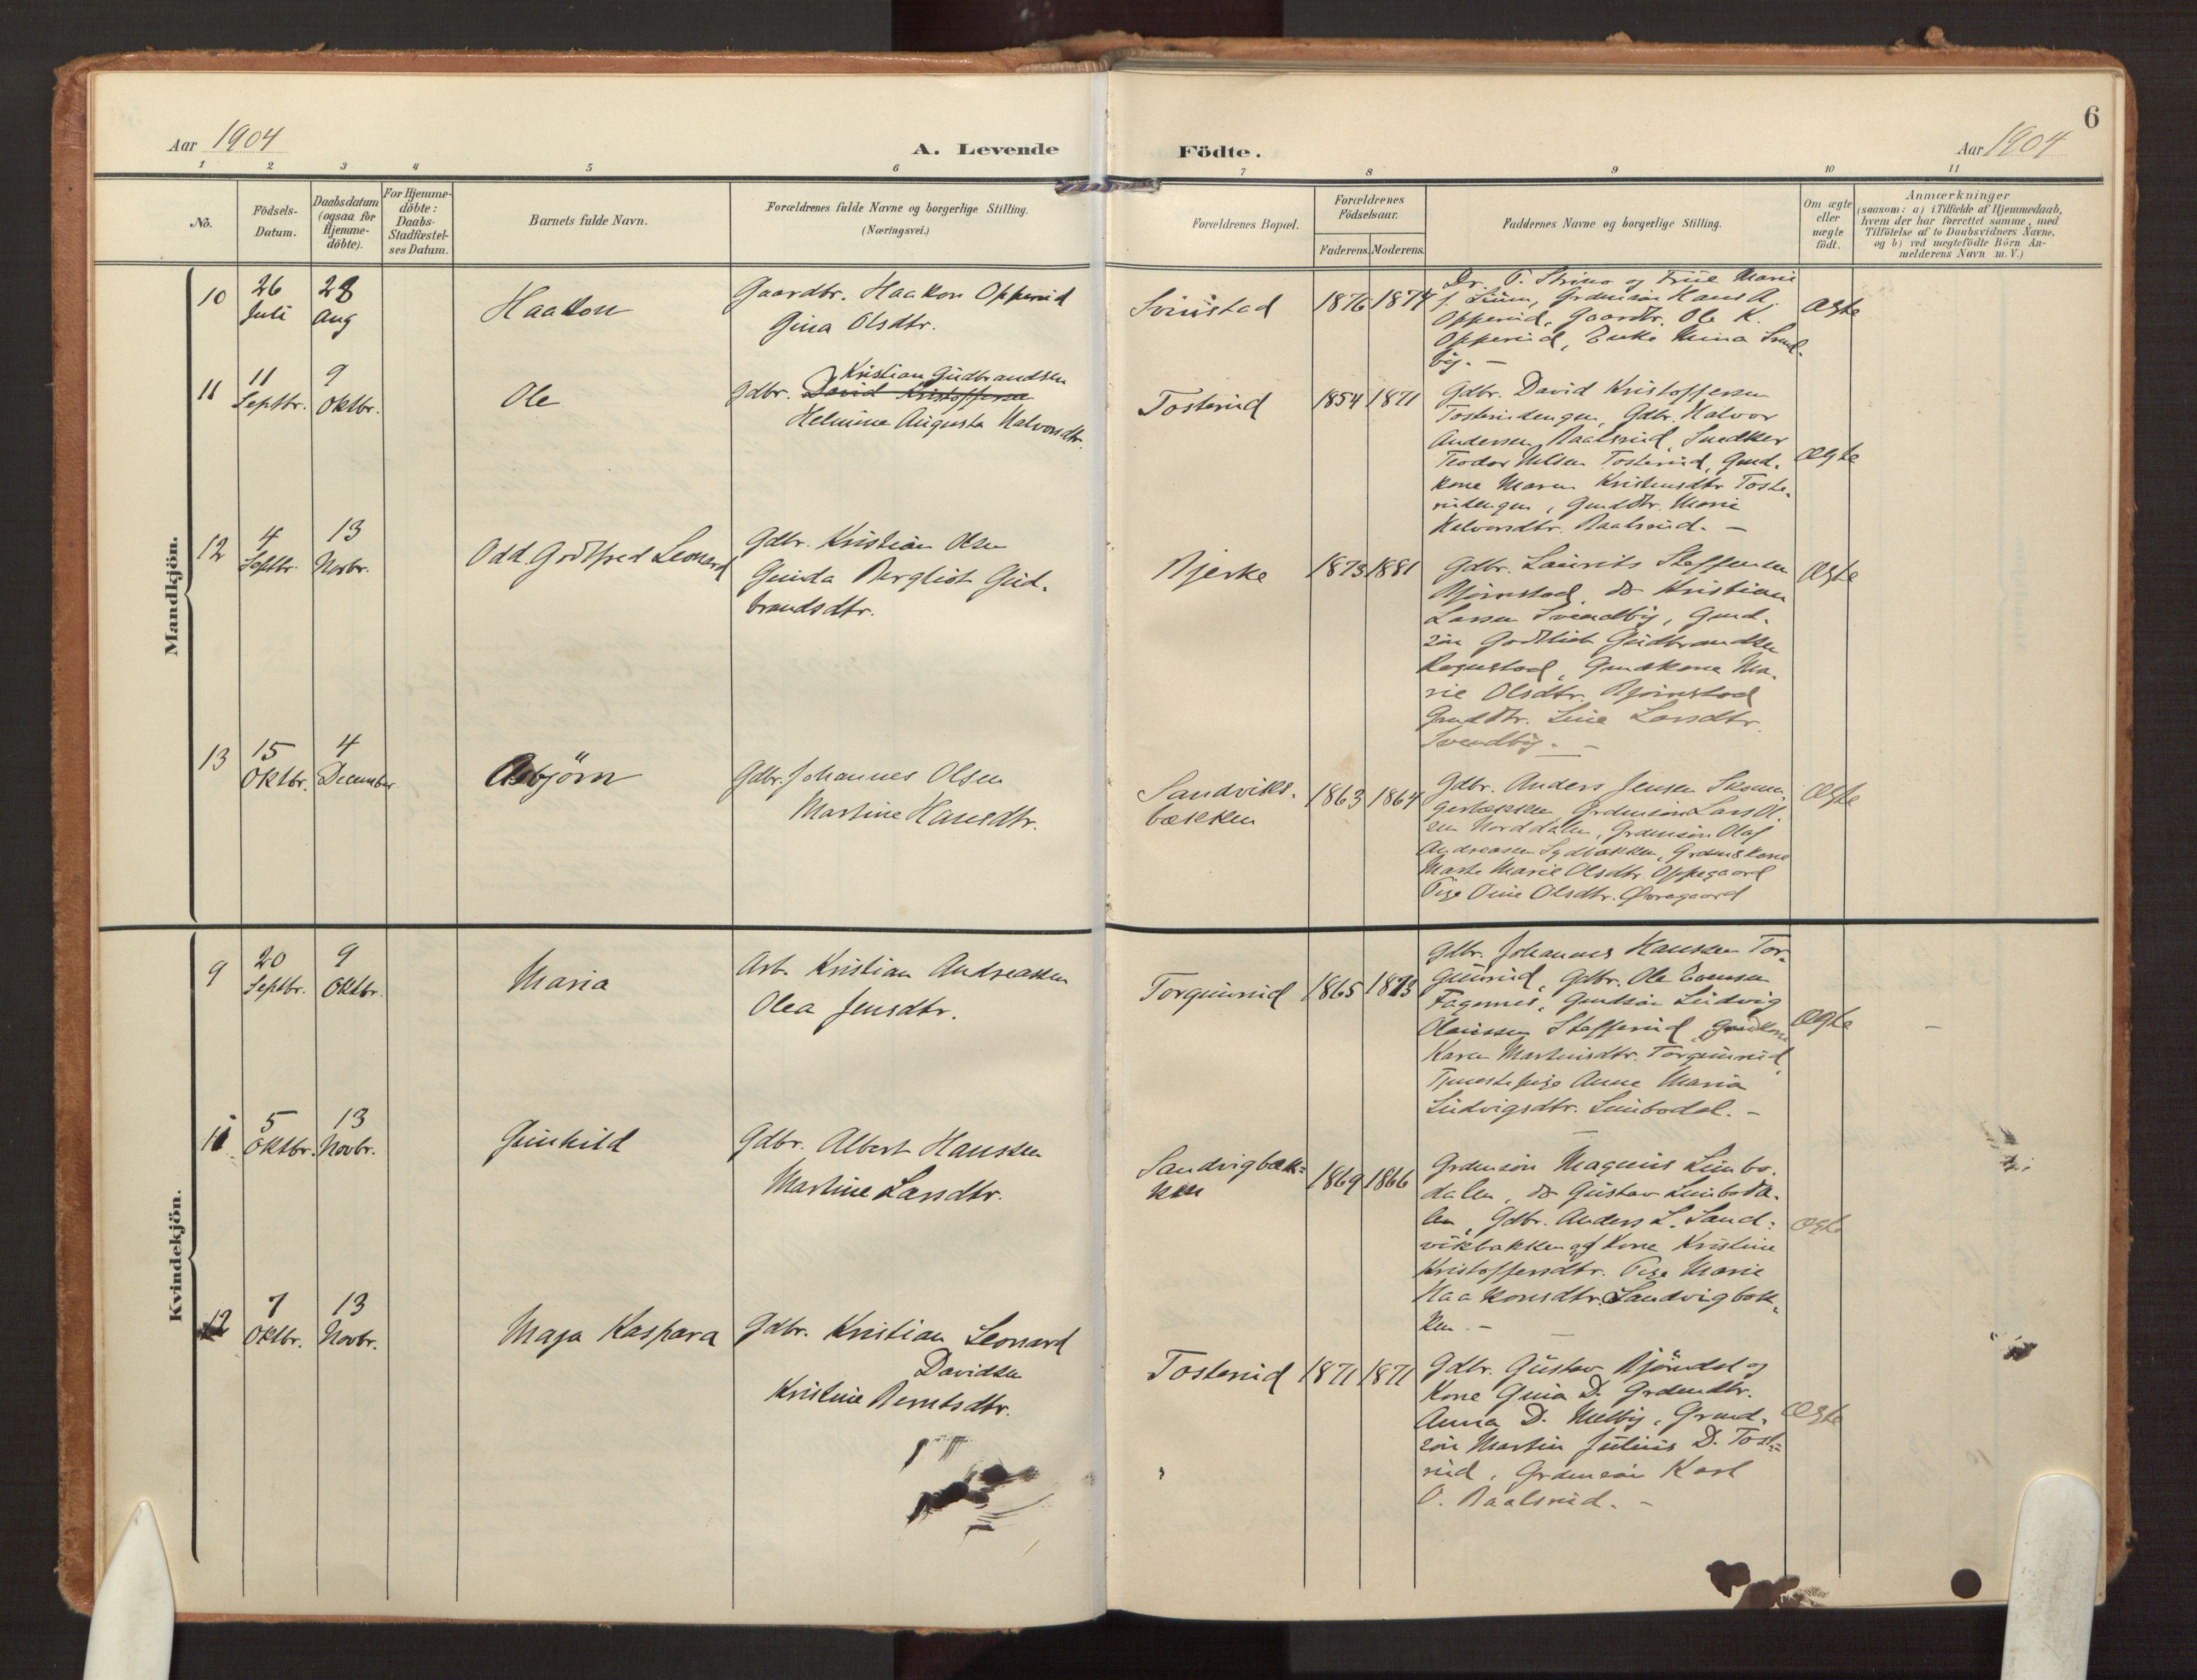 6
Aar 1904
A. Levende
Födte.
Aar 1904
1 2 3 4 5 6 7 8 9 10 11
No.
Födsels-
Datum.
Daabsdatum
(ogsaa for
Hjemme-
döbte).
For Hjemme-
döbte:
Daabs-
Stadfæstel-
ses Datum.
Barnets fulde Navn.
Forældrenes fulde Navne og borgerlige Stilling.
(Næringsvei.)
Forældrenes Bopæl.
Forældrenes
Födselsaar.
Faderens. Moderens.
Faddernes Navne og borgerlige Stilling.
Om ægte
eller
uægte
födt.
Anmærkninger
(saasom: a) i Tilfælde af Hjemmedaab,
hvem der har forrettet samme, med
Tilföielse af to Daabsvidners Navne,
og b) ved uægtefödte Börn An-
melderens Navn m. V.)
Mandkjön.
10
26
Juli
28
Aug
Haakon
Gaardbr. Haakon Opperud
Gina Olsdtr.
Svinstad
1876 1874
Opperud, Gaardbr. Ole K.
Opperud, Enke Mina
by. -
Ægte
11
11
Septbr.
9
Oktbr.
Ole
Kristian Gudbrandsen
Gdbr. David Kristoffersen
Helmine Augusta Halvorsdtr.
Tosterud
1854 1871
Gdbr. David Kristoffersen
Tosterudengen, Gdbr. Halvor
Andersen Baalsrud, Snedker
Teodor Nilsen Tosterud, Gmd.
kone Maren Kristensdtr Toste-
rudengen, Gmddtr. Marie
Halvorsdtr. Baalsrud. -
Ægte
12
4
Septbr.
13
Novbr.
Odd Godtfred Leonard
Gdbr. Kristian Olsen
Gunda Bergliot Gud-
brandsdtr.
Bjerke
1873 1881
Gdbr. Laurits Steffensen
Bjørnstad, do Kristian
Larsen Svendby, Gmd.
søn Godtlieb Gudbrandsen
Rognstad, Gmdskone Ma-
rie Olsdtr. Bjørnstad
Gmddtr. Line Larsdtr.
Svendby. -
Ægte
13
15
Oktbr.
4
December
Asbjörn
Gdbr. Johannes Olsen
Martine Hansdtr.
Sandviks-
bækken
1863 1864
Gdbr. Anders Jensen
Norddalen, Grdmsøn Olaf
Andreassen Sydbakken, Grdmskone
Marte Marie Olsdtr. Oppegaard
Pige Oline Olsdtr. Øvregaard
Ægte
Kvindekjön.
9
20
Septbr.
9
Oktbr.
Maria
Arb. Kristian Andreassen
Olea Jensdtr.
Torgunrud
1865 1873
Gdbr. Johannes Hanssen Tor-
gunrud, Gdbr. Ole Evensen
Fagernes, Gmdsøn Ludvig
Olaussen Stefferud, Gmdkone
Karen Martinsdtr. Torgunrud,
Tjenestepige Anne Maria
Ludvigsdtr. Lunbodal. -
Ægte
-
5
Oktbr.
13
Novbr.
Gunhild
Gdbr. Albert Hanssen
Martine Larsdtr.
Sandvigbæk-
ken
1869 1866
Grdmsøn Magnus Lunbo-
dalen, do Gustav Lunboda-
len, Gdbr. Anders L. Sand-
vikbakken og Kone Kristine
Kristoffersdtr. Pige Marie
Haakonsdtr. Sandvigbæk-
ken. -
Ægte
12
7
Oktbr.
13
Novbr.
Maja Kaspara
Gdbr. Kristian Leonard
Davidsen
Kristine Berntsdtr.
Tosterud
1871 1871
Gdbr. Gustav Bjørndal og
Kone Gina D. Grdmdtr.
Anna D. Melby, Grmd-
søn Martin Julius D. Toste-
rud, Grdmsøn Karl
O. Baalsrud. -
Ægte